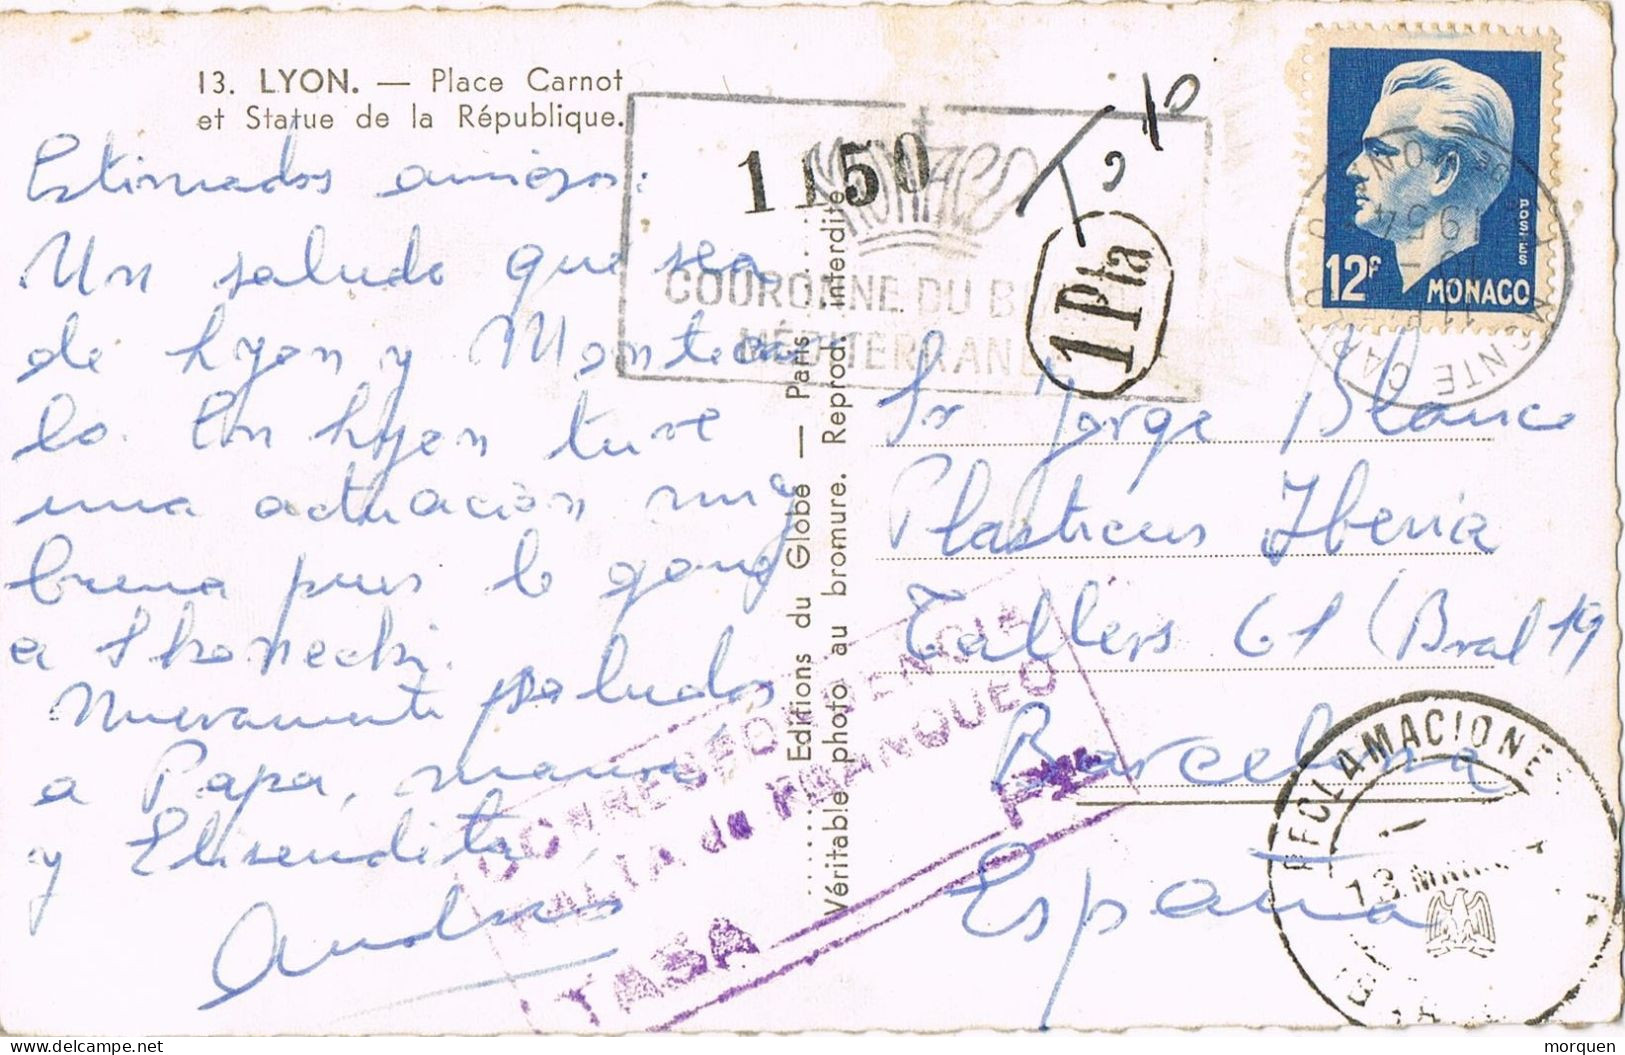 13. LYON. — Place Carnot
et Statue de la République.
Estimados amigos:
Un saludo que sea
de Lyon y Montecar
lo. En Lyon tuve
una actuación muy
buena pues le gané
a Skonecki.
Nuevamente saludos
a Papa, mamá
y Elisendita
Andres
Editions du Globe — Paris
Véritable photo au bromure. Reprod. interdite
1 1 50
MONACO
COURONNE DU
MÉDITERRANÉE
T. 10
1 Pta
POSTES
12F MONACO
MONTE CARLO
11
1954
Sr Jorge Blanco
Plasticos Iberia
Tallers 61 (Bral 19
Barcelona
España
CORRESPONDENCIA
FALTA de FRANQUEO
TASA
RECLAMACIONES
13 MAR
morquen
delcampe.net